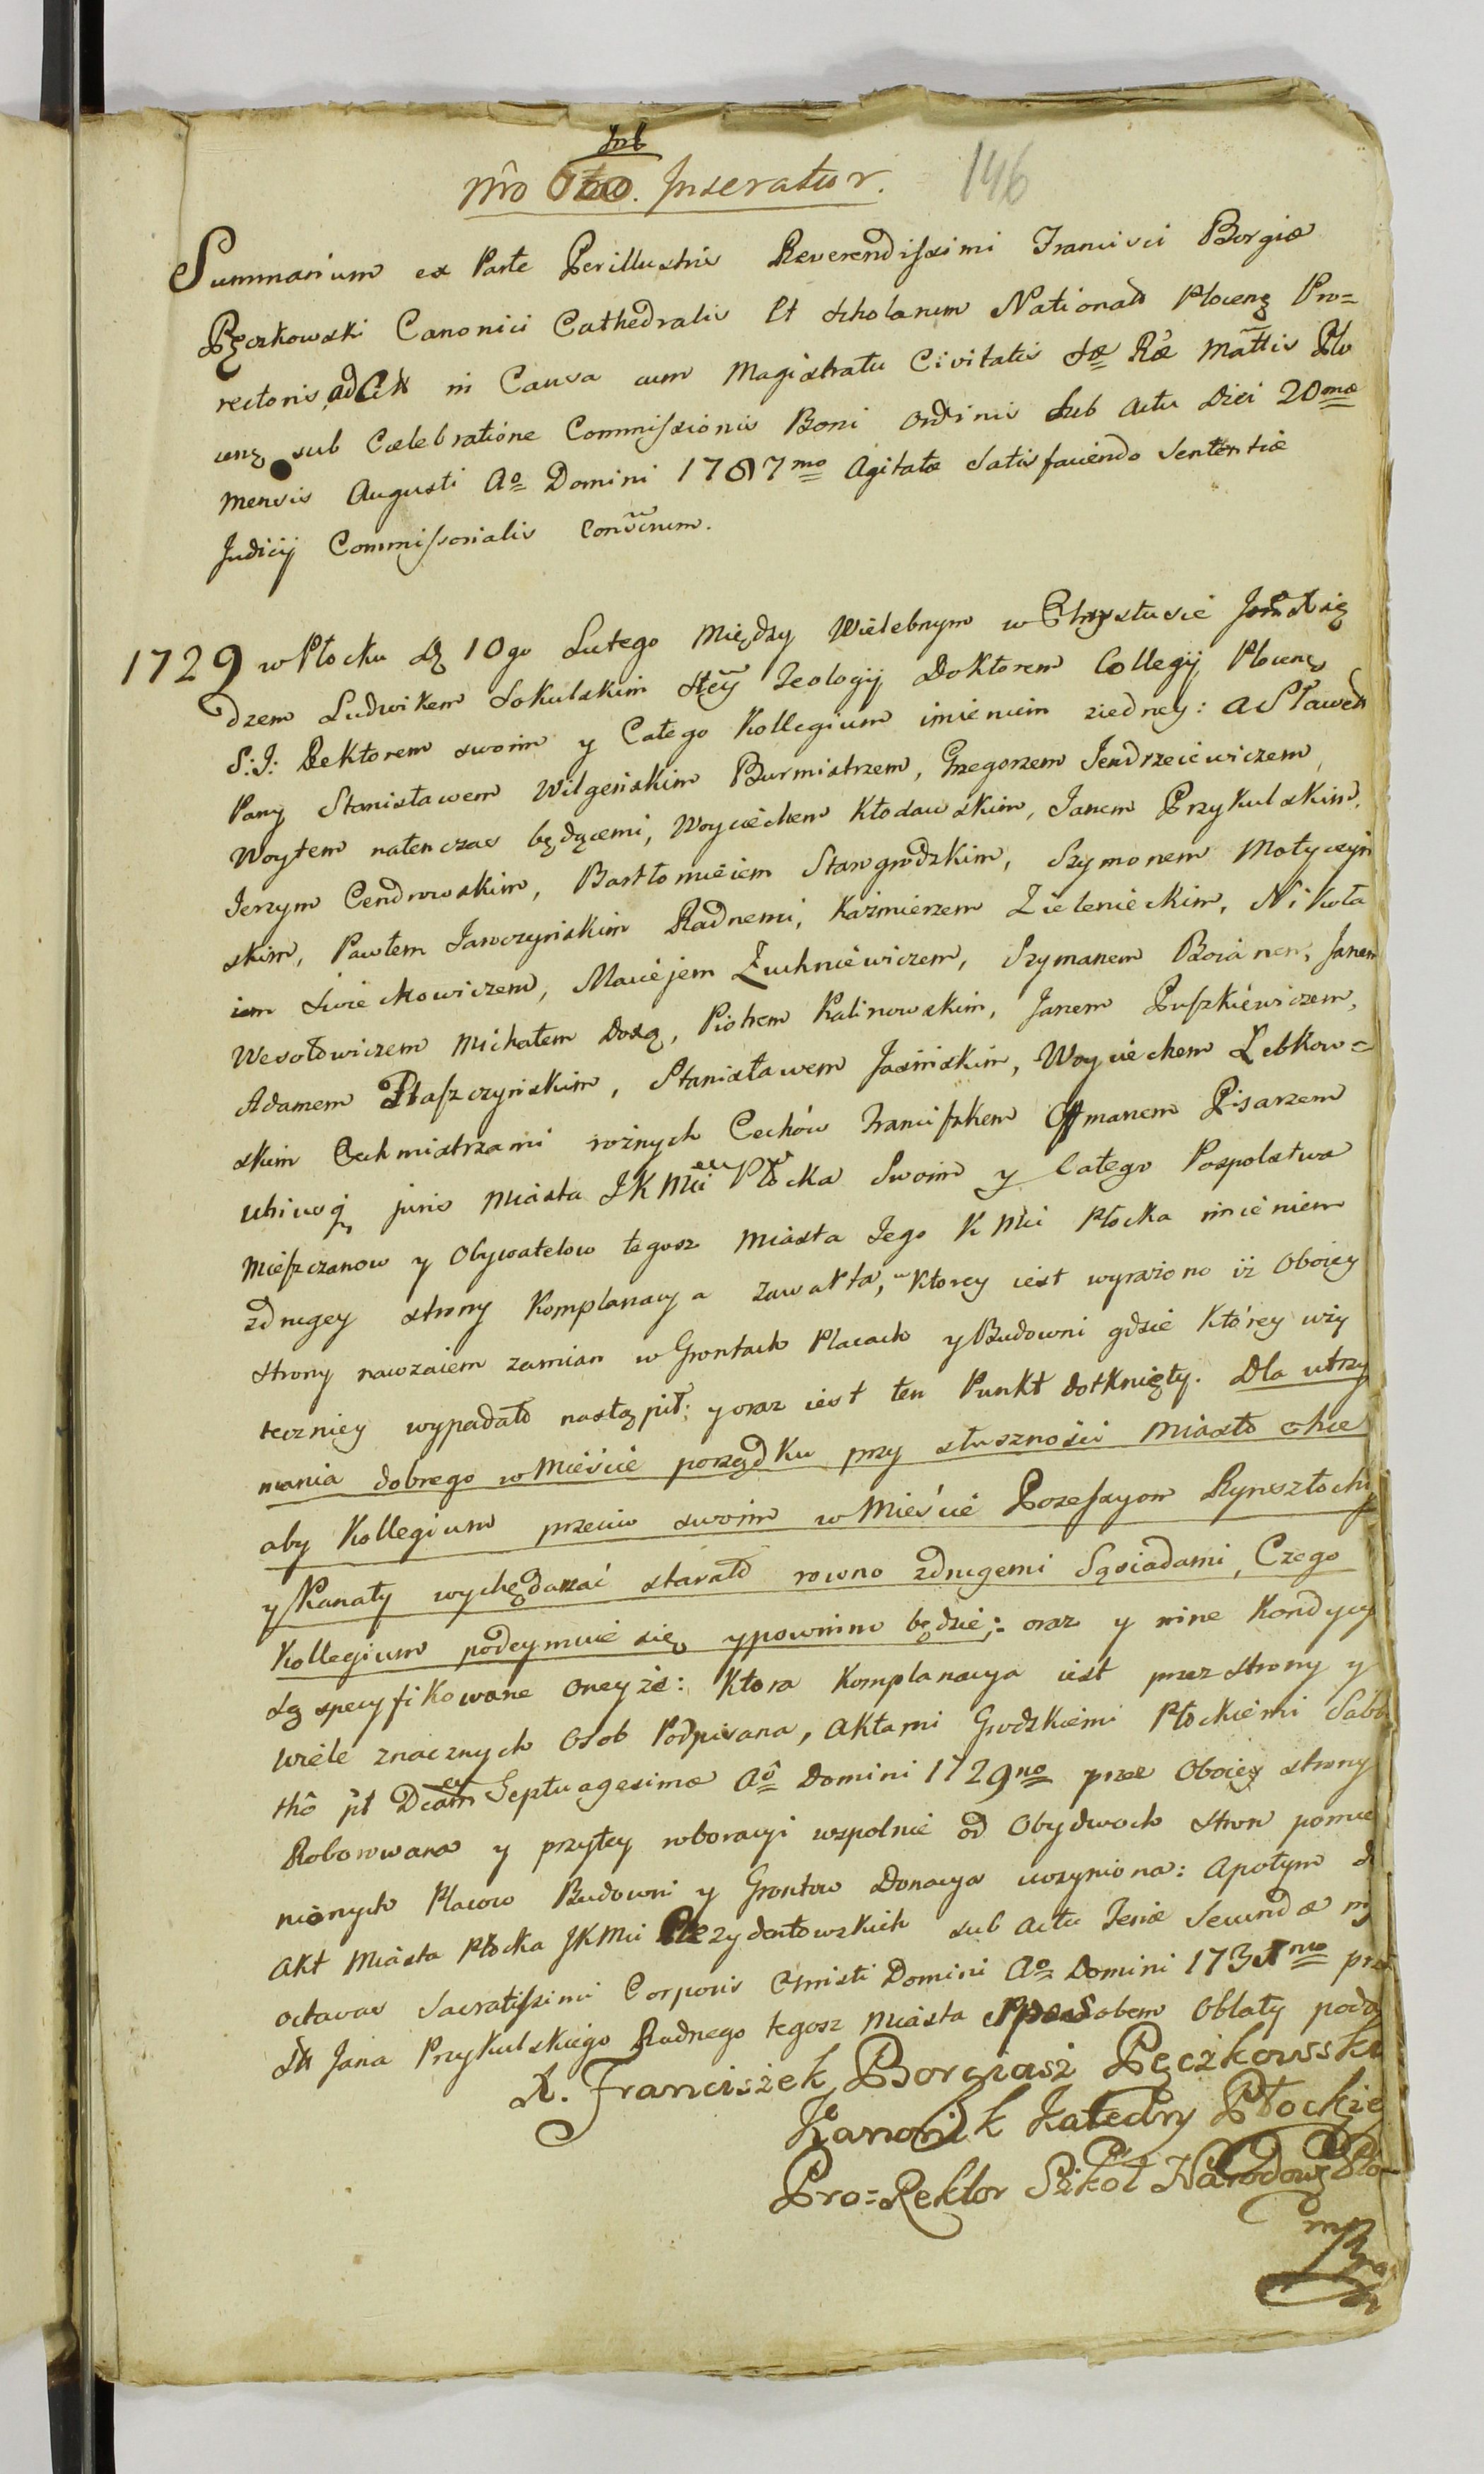 Sub
nro 8vo. Inseratur. 146
Summarium ex Parte Perillustris Reverendissimi Francisci Borgiæ
Pęczkowski Canonici Cathedralis Et Scholarum National Plocens Pro=
rectoris, ad in Causa cum Magistratu Civitatis Sæ Ræ Mattis Plo
cens sub Celebratione Commissionis Boni Ordinis Sub Actu Diei 20mæ
Mensis Augusti Ao Domini 1787mo Agitatæ Satisfaciendo Sententiæ
Judicij Commissorialis
1729 w Płocku d 10go Lutego Między Wielebnym w Chrystusie Jmc Xię
dzem Ludwikem Sokulskim Stey Teologij Doktorem Collegij Plocens
S: J: Rektorem swoim y Całego Kollegium imieniem ziedney: a Sławet
Pany Stanisławem Wilgenskim Burmistrzem, Grzegorzem Jendrzeiewiczem,
Woytem natenczas będącemi, Woyciechem Kłodawskim, Janem Przykulskim,
Jerzym Cendrowskim, Bartłomieiem Stawgrodzkim, Szymonem Motyczyń
skim, Pawłem Jawczynskim Radnemi, Kaźmierzem Zielenieckim, Mikoła
iem Swieckowiczem, Maciejem Zuchniewiczem, Szymanem Boianem, Janem
Wesołowiczem Michałem Dosą, Piotrem Kalinowskim, Janem Puszkiewiczem,
Adamem Płaszczyńskim, Stanisławem Jasinskim, Woyciechem Lebkow=
skim Cechmistrzami rożnych Cechów Franciszkem Offmanem Pisarzem
utriusq juris Miasta JKMci Płocka Swoim y Całego Pospolstwa
Mieszczanow y Obywatelow tegosz Miasta Jego K Mci Płocka imieniem
zdrugey strony Komplanacya Zawarta, w Ktorey iest wyrażono iż Oboiey
strony nawzaiem zamian w Grontach Placach y Budowni gdzie Którey uży
teczniey wypadało nastąpił: y oraz iest ten Punkt dotknięty. Dla utrzy
mania dobrego w Mieście porządku przy słuszności Miasto chce
aby Kollegium przeciw swoim w Mieście Possessyom Rynsztochi
y Kanały wychędażać starało rowno zdrugemi Sąsiadami, Czego
Kollegium podeymuie się y powinno będzie; oraz y inne Kondycye
są specyfikowane oneyże: Ktora Komplanacya iest przez strony y
wiele znacznych Osob Podpisana, Aktami Grodzkiemi Płockiemi Sabba
tho pt Dcam Septuagesimæ Ao Domini 1729no przez Oboiey strony
Roborowana y przytey roboracyi wspolnie od Obydwoch stron pomie
nionych Placow Budowni y Grontow Donacya uczyniona: apotym do
Akt Miasta Płocka JKMci Prezydentowskich sub actu Feriæ Secundæ
octavas Sacratissimi Corporis Christi Domini Ao Domini 173
Jana Przykulskiego Radnego tegosz Miasta Sposobem Oblaty poda
X. Franciszek Borgiasz Pęczkowski
Kanonik Katedry Płockie
Pro=Rektor Szkół Narodow Pło
mp